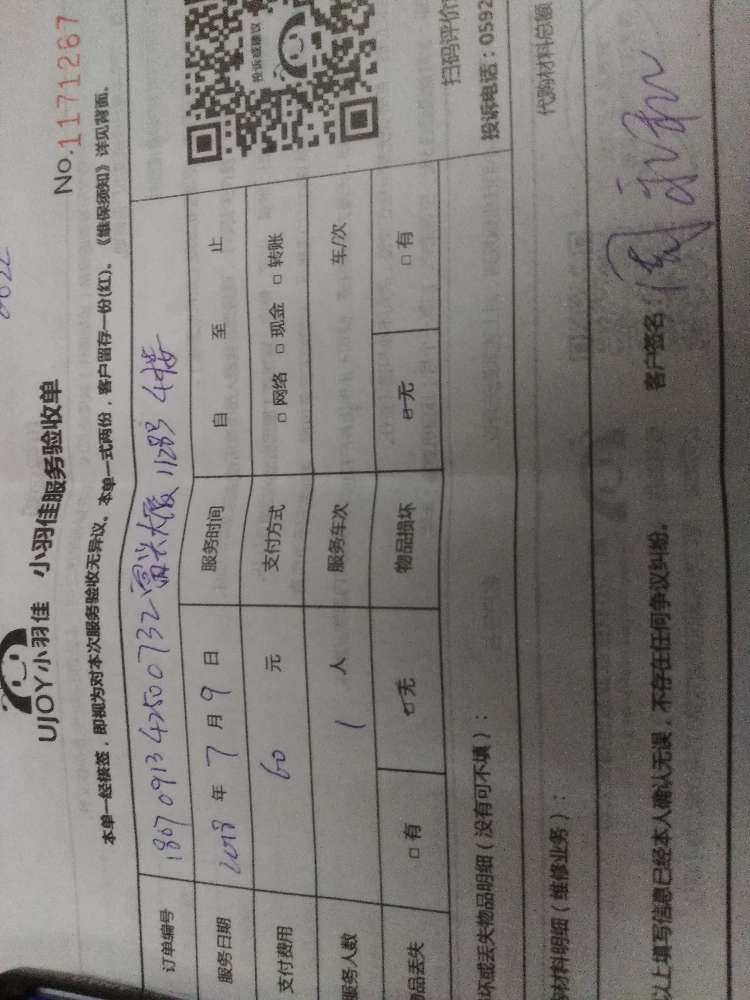 UJOY小羽佳 小羽佳服务验收单
No.1171267
本单一经核签，即视为对本次服务验收无异议。本单一式两份，客户留存一份(红)。《维保须知》详见背面。
订单编号 1807091342500732 富兴大厦 1128号 4楼
服务日期 2018 年 7 月 9 日 服务时间 自 至 止
支付费用 60 元 支付方式 □ 网络 □ 现金 □ 转账
服务人数 1 人 服务车次 车/次
品丢失 □ 有 □ 无 物品损坏 □ 无 □ 有
投诉或建议
扫码评价
投诉电话：0592
坏或丢失物品明细（没有可不填）：
材料明细（维修业务）： 代购材料总额
以上填写信息已经本人确认无误，不存在任何争议纠纷。 客户签名：